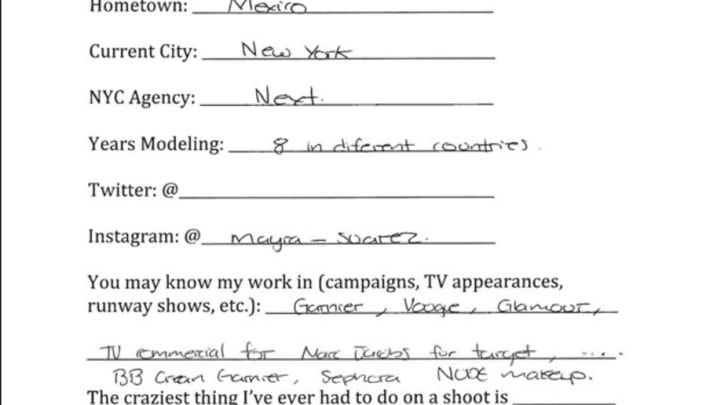 Hometown: Mexico
Current City: New York
NYC Agency: Next.
Years Modeling: 8 in diferent countries.
Twitter: @
Instagram: @ mayra_suarez.
You may know my work in (campaigns, TV appearances,
runway shows, etc.): Garnier, Vogue, Glamour,
TV commercial for Marc Jacobs for target, ....
BB Cream Garnier, Sephora NUDE makeup.
The craziest thing I've ever had to do on a shoot is